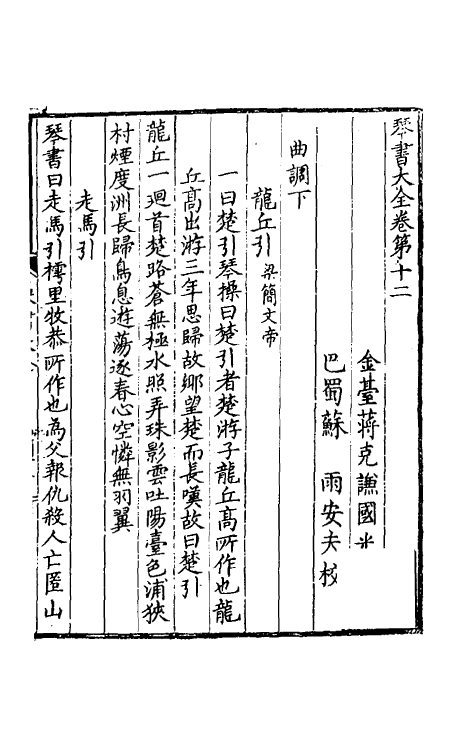 琴書大全卷第十二
金臺蔣克謙國光
巴蜀蘇　雨安夫校
曲調下
龍丘引 梁簡文帝
一曰楚引琴操曰楚引者楚游子龍丘高所作也龍
丘高出游三年思歸故鄉望楚而長嘆故曰楚引
龍丘一廻首楚路蒼無極水照弄珠影雲吐陽臺色浦狹
村煙度洲長歸鳥息遊蕩逐春心空憐無羽翼
走馬引
琴書曰走馬引樗里牧恭所作也為父報仇殺人亡匿山